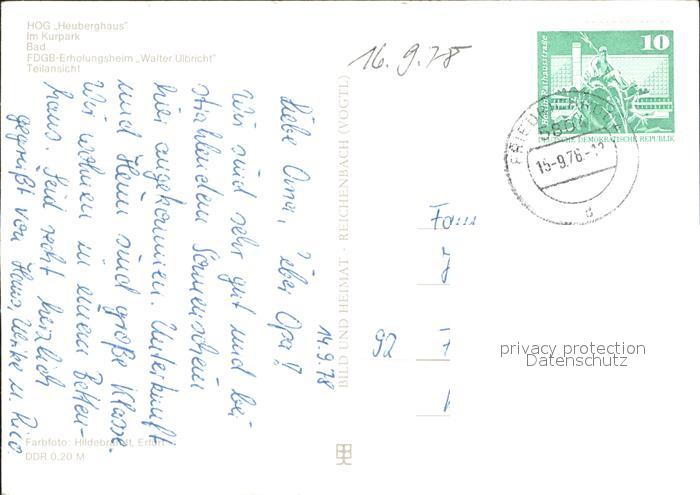 HOG „Heuberghaus"
Im Kurpark
Bad
FDGB-Erholungsheim „Walter Ulbricht"
Teilansicht
16.9.78
14.9.78
Liebe Oma, lieber Opa!
Wir sind sehr gut und bei
strahlendem Sonnenschein
hier angekommen. Unterkunft
und Heim sind große Klasse.
Wir wohnen in einem Betten-
haus. Seid recht herzlich
gegrüßt von Hans, Ulrike u. Rico.
BILD UND HEIMAT · REICHENBACH (VOGTL)
Farbfoto: Hildebrandt, Erfurt
DDR 0,20 M
10
Berlin, Rathausstraße
DEUTSCHE DEMOKRATISCHE REPUBLIK
5804
15.-9.78.-12
d
Fam
92
privacy protection
Datenschutz